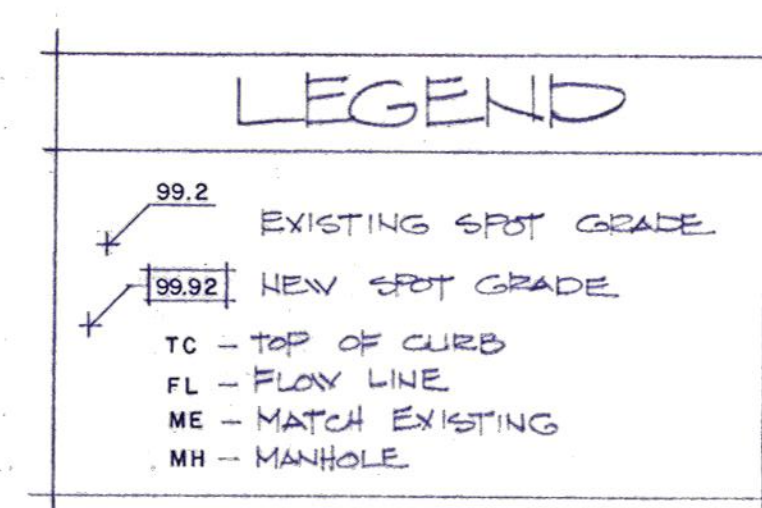 LEGEND
99.2 EXISTING SPOT GRADE
99.92 NEW SPOT GRADE
TC - TOP OF CURB
FL - FLOW LINE
ME - MATCH EXISTING
MH - MANHOLE